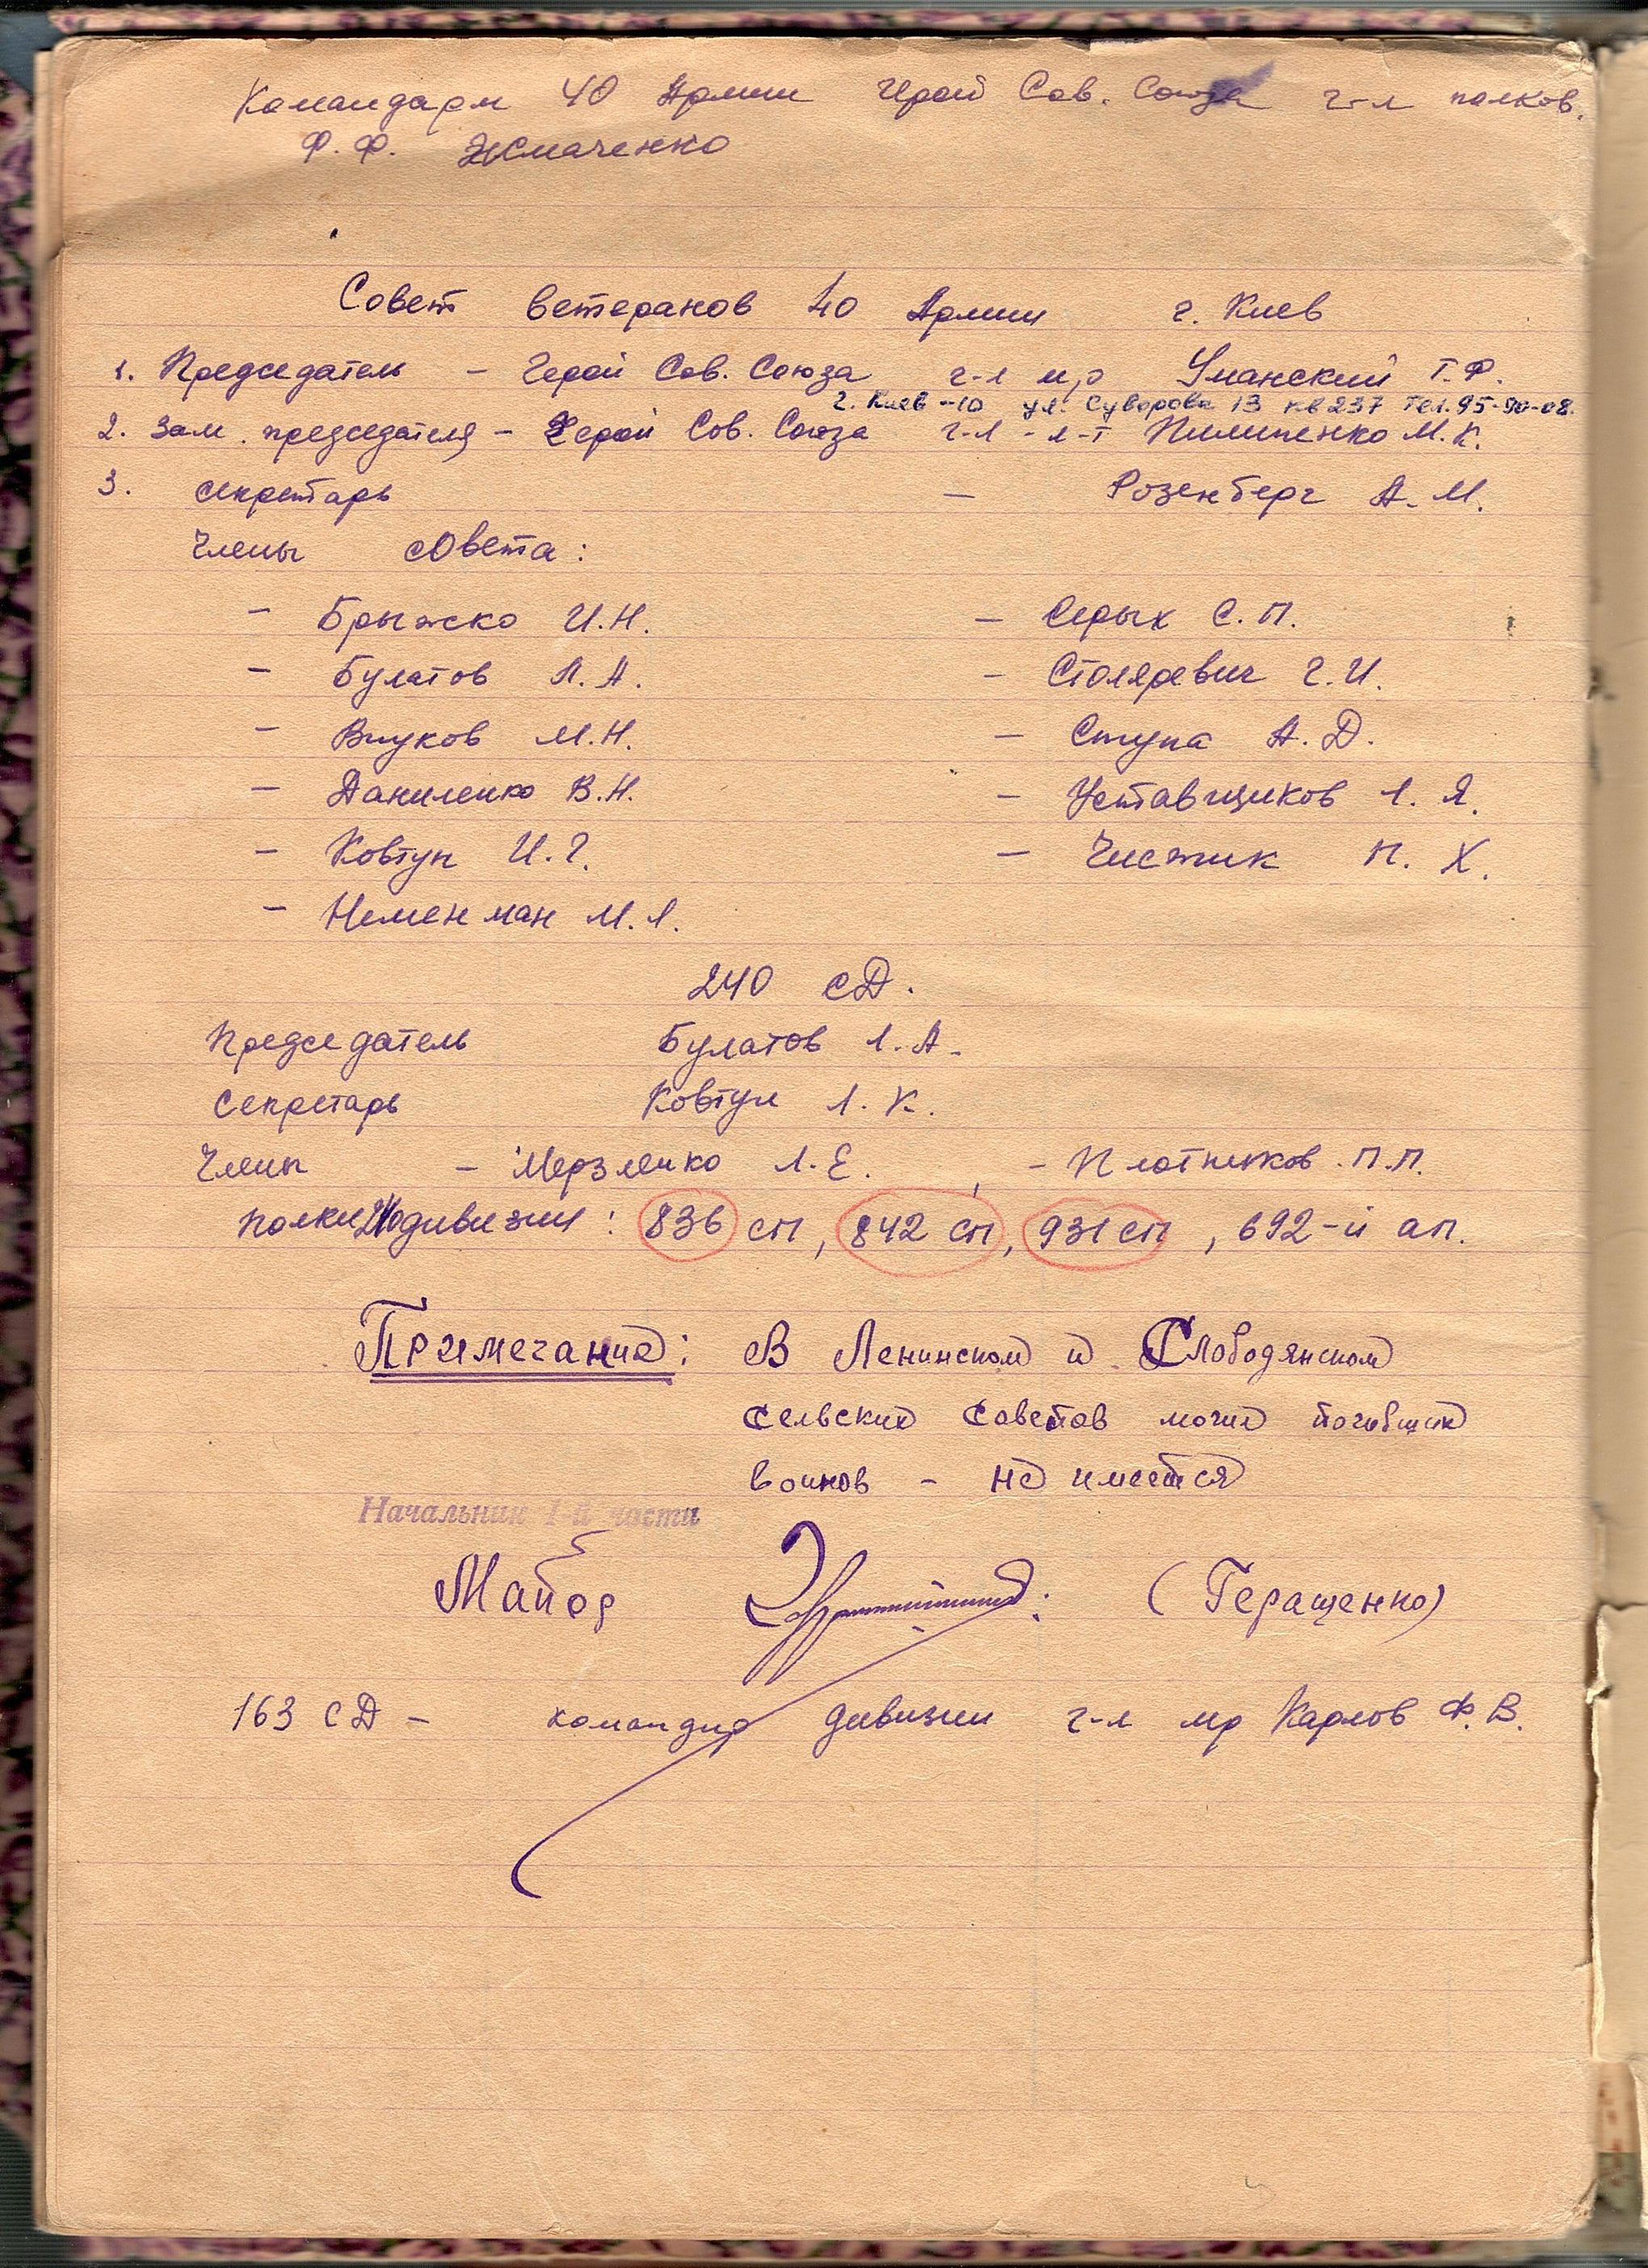 Командарм 40 Армии Герой Сов. Союза г-л полков.
Ф. Ф. Жмаченко
Совет ветеранов 40 Армии г. Киев
1. Председатель – Герой Сов. Союза г-л м,р Уманский Т.Ф.
г. Киев-10 ул. Суворова 13 кв 237 тел. 95-90-08.
2. Зам. председателя – Герой Сов. Союза г-л-л-т Пилипенко М.К.
3. секретарь – Розенберг А.М.
Члены совета:
– Брыжко И.Н. – Серых С.П.
– Булатов Л.А. – Столяревич Г.И.
– Внуков М.Н. – Ступа А.Д.
– Даниленко В.Н. – Уставщиков Л.Я.
– Ковтун И.Г. – Чистик П.Х.
– Неменман М.Л.
240 сД.
Председатель Булатов Л.А.
Секретарь Ковтун Л.К.
Члены – Мерзленко Л.Е. , – Плотников.П.П.
Полки 240 дивизии: 836 сп, 842 сп, 931 сп, 692-й ап.
Примечание: В Ленинском и Слободянском
сельских Советов могил погибших
воинов – не имеется
Начальник 1-й части
Майор (Геращенко)
163 СД – командир дивизии г-л мр Карлов Ф.В.